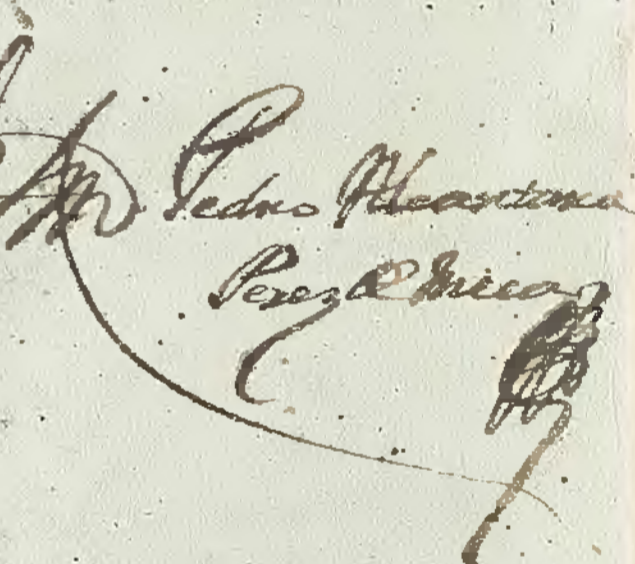 Pedro Alcantara
Perez de Mica